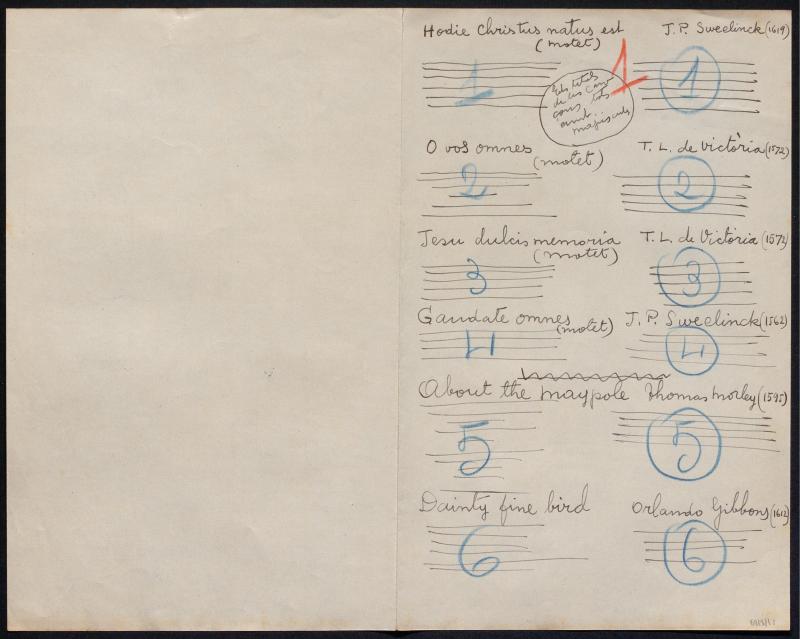 Hodie Christus natus est J. P. Sweelinck (1619)
(motet)
1 1 1
Els titols
de les can-
çons, tots
amb
majúscules
O vos omnes T. L. de Victòria (1572)
(motet)
2 2
Jesu dulcis memoria T. L. de Victòria (1572)
(motet)
3 3
Gaudate omnes J. P. Sweelinck (1562)
(motet)
4 4
About the maypole Thomas Morley (1595)
5 5
Dainty fine bird Orlando Gibbons (1612)
6 6